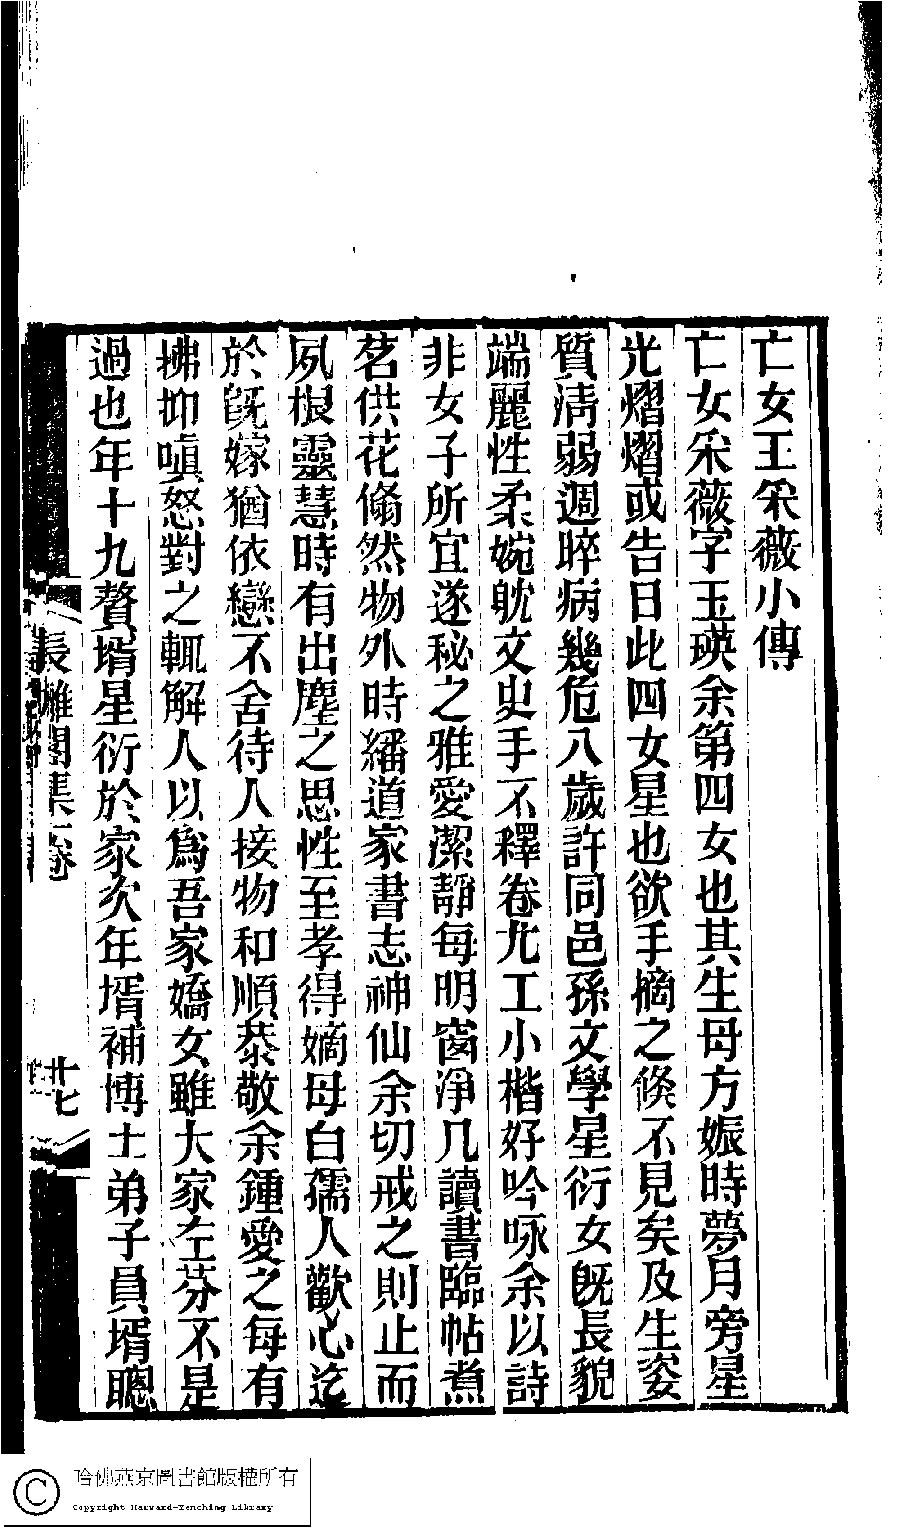 亡女王采薇小傳
亡女采薇字玉瑛余第四女也其生母方娠時夢月旁星
光熠熠或告曰此四女星也欲手摘之倐不見矣及生姿
質清弱週晬病幾危八歲許同邑孫文學星衍女旣長貌
端麗性柔婉躭文史手不釋卷尤工小楷好吟咏余以詩
非女子所宜遂秘之雅愛潔靜每明窗淨几讀書臨帖煮
茗供花翛然物外時繙道家書志神仙余切戒之則止而
夙根靈慧時有出塵之思性至孝得嫡母白孺人歡心迄
於旣嫁猶依戀不舍待人接物和順恭敬余鍾愛之每有
拂抑嗔怒對之輒解人以爲吾家嬌女雖大家左芬不是
過也年十九贅壻星衍於家次年壻補博士弟子員壻聰
長離閣集卷
廿七
哈佛燕京圖書館版權所有
Copyright Harvard-Yenching Library